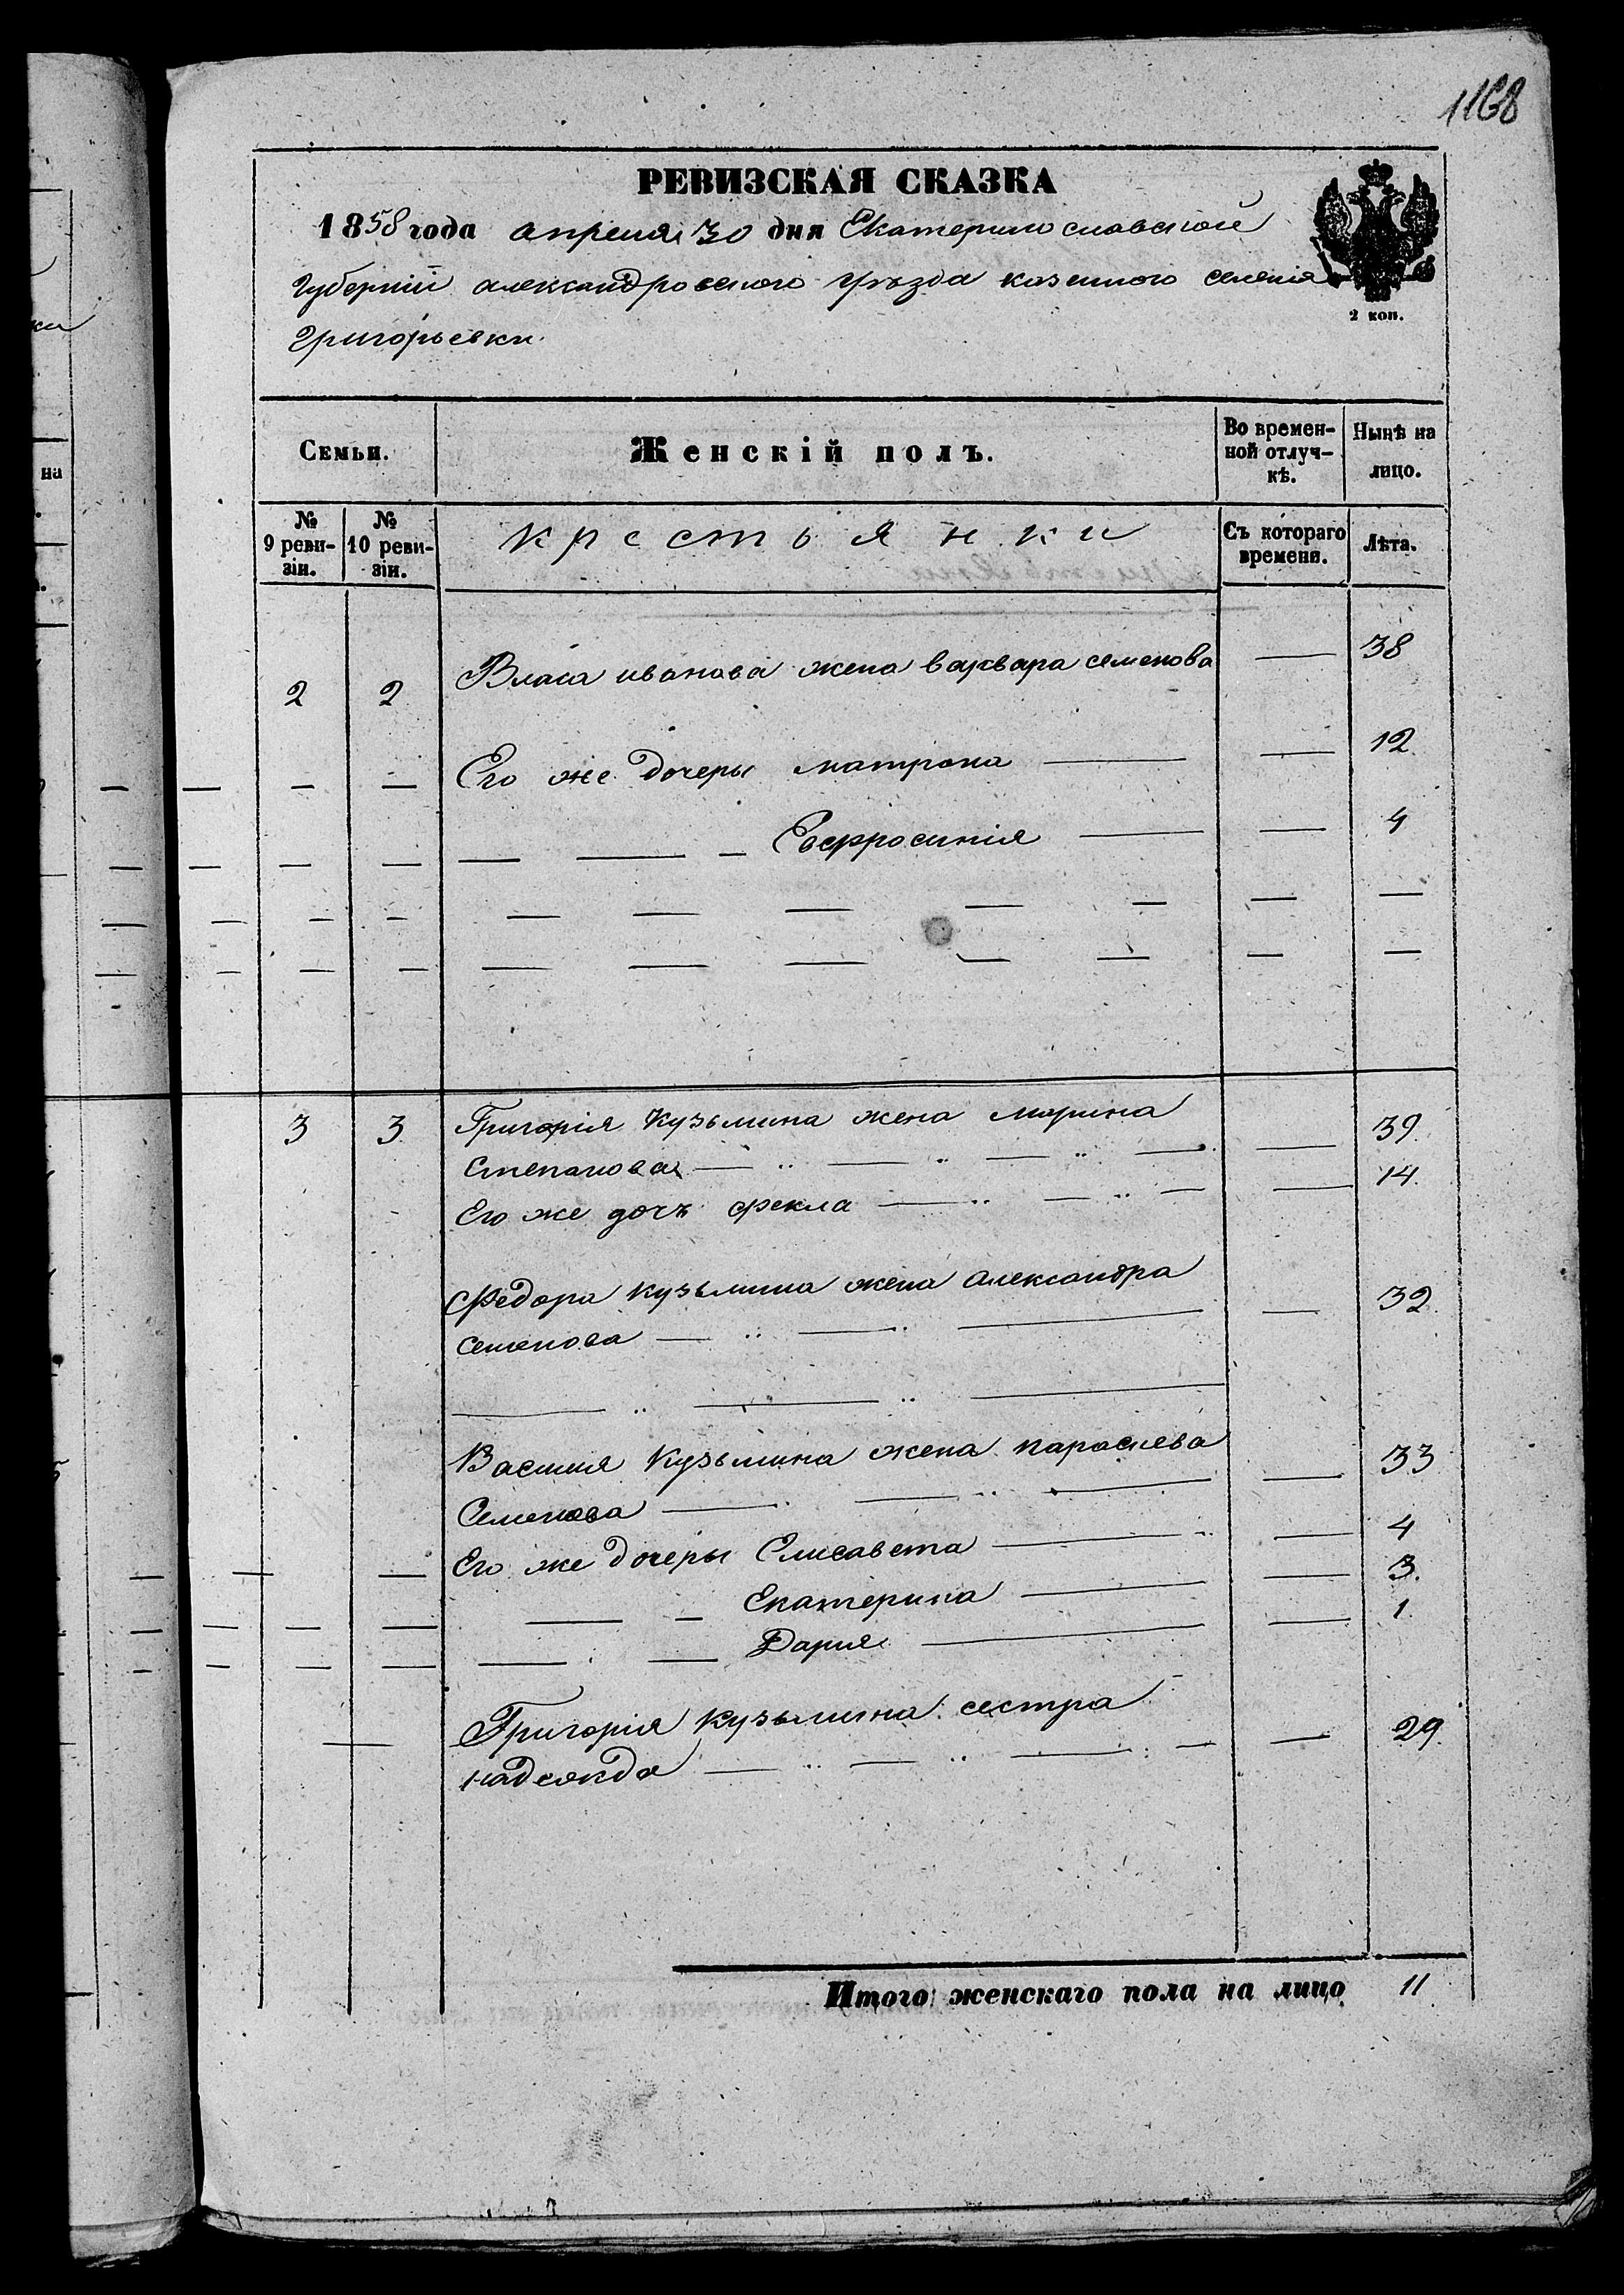 1168
РЕВИЗСКАЯ СКАЗКА
1858 года апреля 30 дня Екатеринославской
Губерніи александровского уѣзда казенного селенія
Григорьевки.
2 коп.
Семьи.
Женскій полъ.
Во времен-
ной отлуч-
кѣ.
Нынѣ на
лицо.
№
9 реви-
зіи.
№
10 реви-
зіи.
крестьянки
Съ котораго
времени.
Лѣта.
2 2 Власа иванова жена варвара семенова — 38
Его же дочеры матрона — 12
Евфросинія — 4
3 3 Григорія Кузьмина жена марина
степанова — 39.
Его же дочъ фекла — 14.
Федора кузьмина жена александра
семенова — 32.
Василия Кузьмина жена параскева
Семенова — 33
Его же дочеры Елисавета — 4
Екатерина — 3.
Дария — 1.
Григорія кузьмина сестра
надежда — 29.
Итого женскаго пола на лицо 11
на